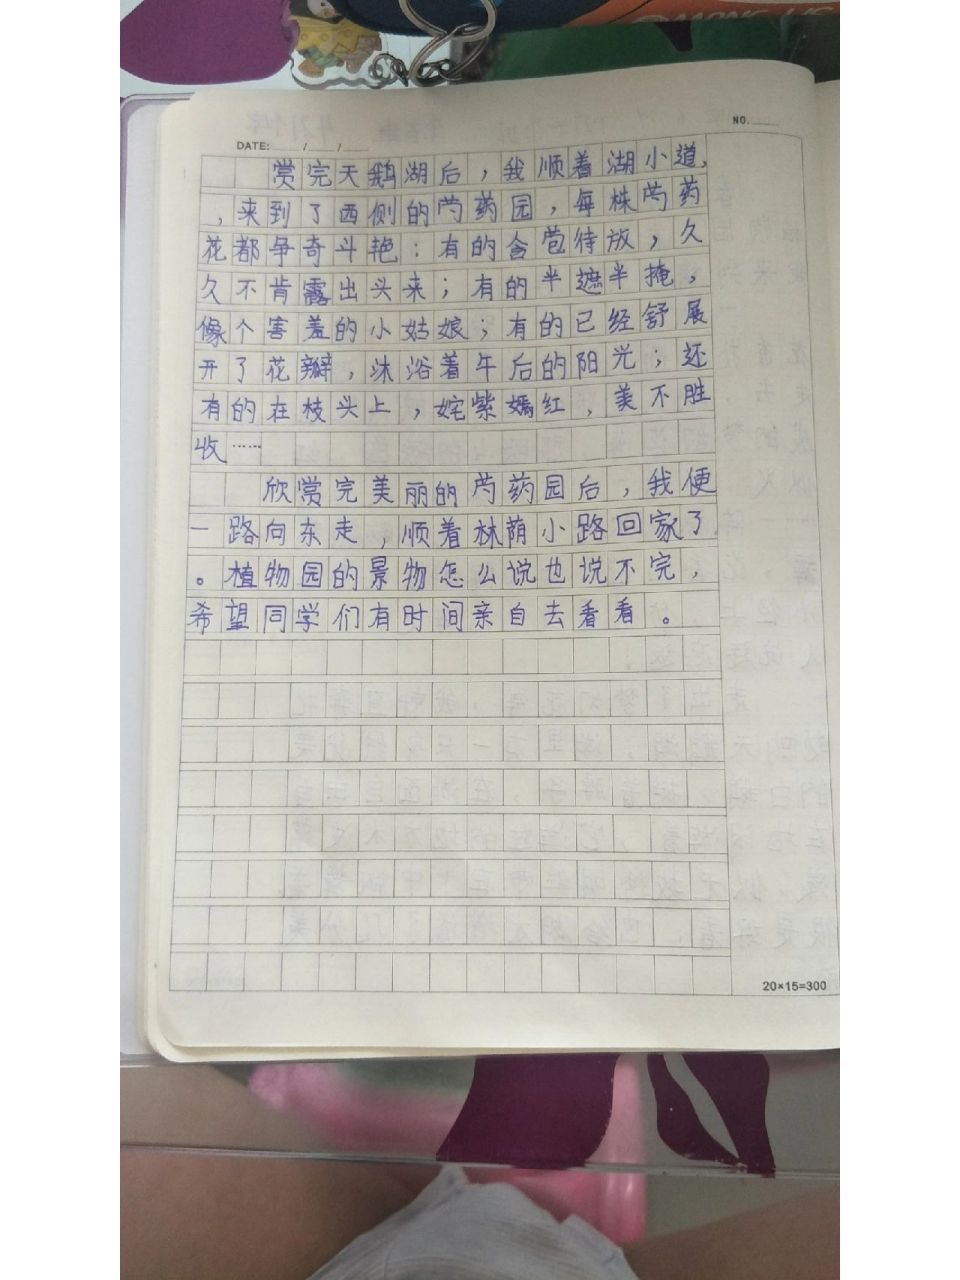 NO.
DATE: / /
赏完天鹅湖后，我顺着湖小道，
，来到了西侧的芍药园，每株芍药
花都争奇斗艳：有的含苞待放，久
久不肯露出头来；有的半遮半掩，
像个害羞的小姑娘；有的已经舒展
开了花瓣，沐浴着午后的阳光；还
有的在枝头上，姹紫嫣红，美不胜
收……
欣赏完美丽的芍药园后，我便
一路向东走，顺着林荫小路回家了
。植物园的景物怎么说也说不完，
希望同学们有时间亲自去看看。
20×15=300